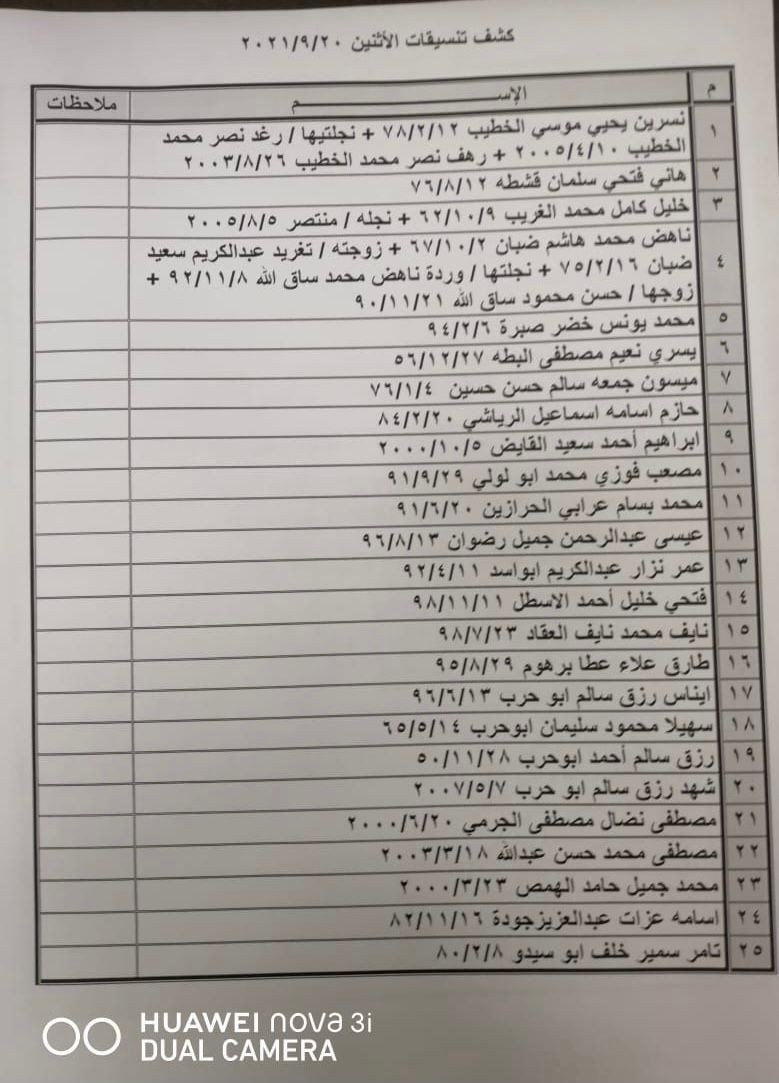 كشف تنسيقات الأثنين ٢٠٢١/٩/٢٠
م الإســـــــــــم ملاحظات
١ نسرين يحيي موسي الخطيب ٧٨/٢/١٢ + نجلتيها / رغد نصر محمد
الخطيب ٢٠٠٥/٤/١٠ + رهف نصر محمد الخطيب ٢٠٠٣/٨/٢٦
٢ هاني فتحي سلمان قشطه ٧٦/٨/١٢
٣ خليل كامل محمد الغريب ٦٢/١٠/٩ + نجله / منتصر ٢٠٠٥/٨/٥
ناهض محمد هاشم ضبان ٦٧/١٠/٢ + زوجته / تغريد عبدالكريم سعيد
٤ ضبان ٧٥/٢/١٦ + نجلتها / وردة ناهض محمد ساق الله ٩٢/١١/٨ +
زوجها / حسن محمود ساق الله ٩٠/١١/٢١
٥ محمد يونس خضر صبرة ٩٤/٢/٦
٦ يسري نعيم مصطفى البطه ٥٦/١٢/٢٧
٧ ميسون جمعه سالم حسن حسين ٧٦/١/٤
٨ حازم اسامه اسماعيل الرياشي ٨٤/٢/٢٠
٩ ابراهيم أحمد سعيد القايض ٢٠٠٠/١٠/٥
١٠ مصعب فوزي محمد ابو لولي ٩١/٩/٢٩
١١ محمد بسام عرابي الحرازين ٩١/٦/٢٠
١٢ عيسى عبدالرحمن جميل رضوان ٩٦/٨/١٣
١٣ عمر نزار عبدالكريم ابواسد ٩٢/٤/١١
١٤ فتحي خليل أحمد الاسطل ٩٨/١١/١١
١٥ نايف محمد نايف العقاد ٩٨/٧/٢٣
١٦ طارق علاء عطا برهوم ٩٥/٨/٢٩
١٧ ايناس رزق سالم ابو حرب ٩٦/٦/١٣
١٨ سهيلا محمود سليمان ابوحرب ٦٥/٥/١٤
١٩ رزق سالم أحمد ابوحرب ٥٠/١١/٢٨
٢٠ شهد رزق سالم ابو حرب ٢٠٠٧/٥/٧
٢١ مصطفى نضال مصطفى الجرمي ٢٠٠٠/٦/٢٠
٢٢ مصطفى محمد حسن عبدالله ٢٠٠٣/٣/١٨
٢٣ محمد جميل حامد الهمص ٢٠٠٠/٣/٢٣
٢٤ اسامه عزات عبدالعزيزجودة ٨٢/١١/١٦
٢٥ تامر سمير خلف ابو سيدو ٨٠/٢/٨
HUAWEI nova 3i
DUAL CAMERA